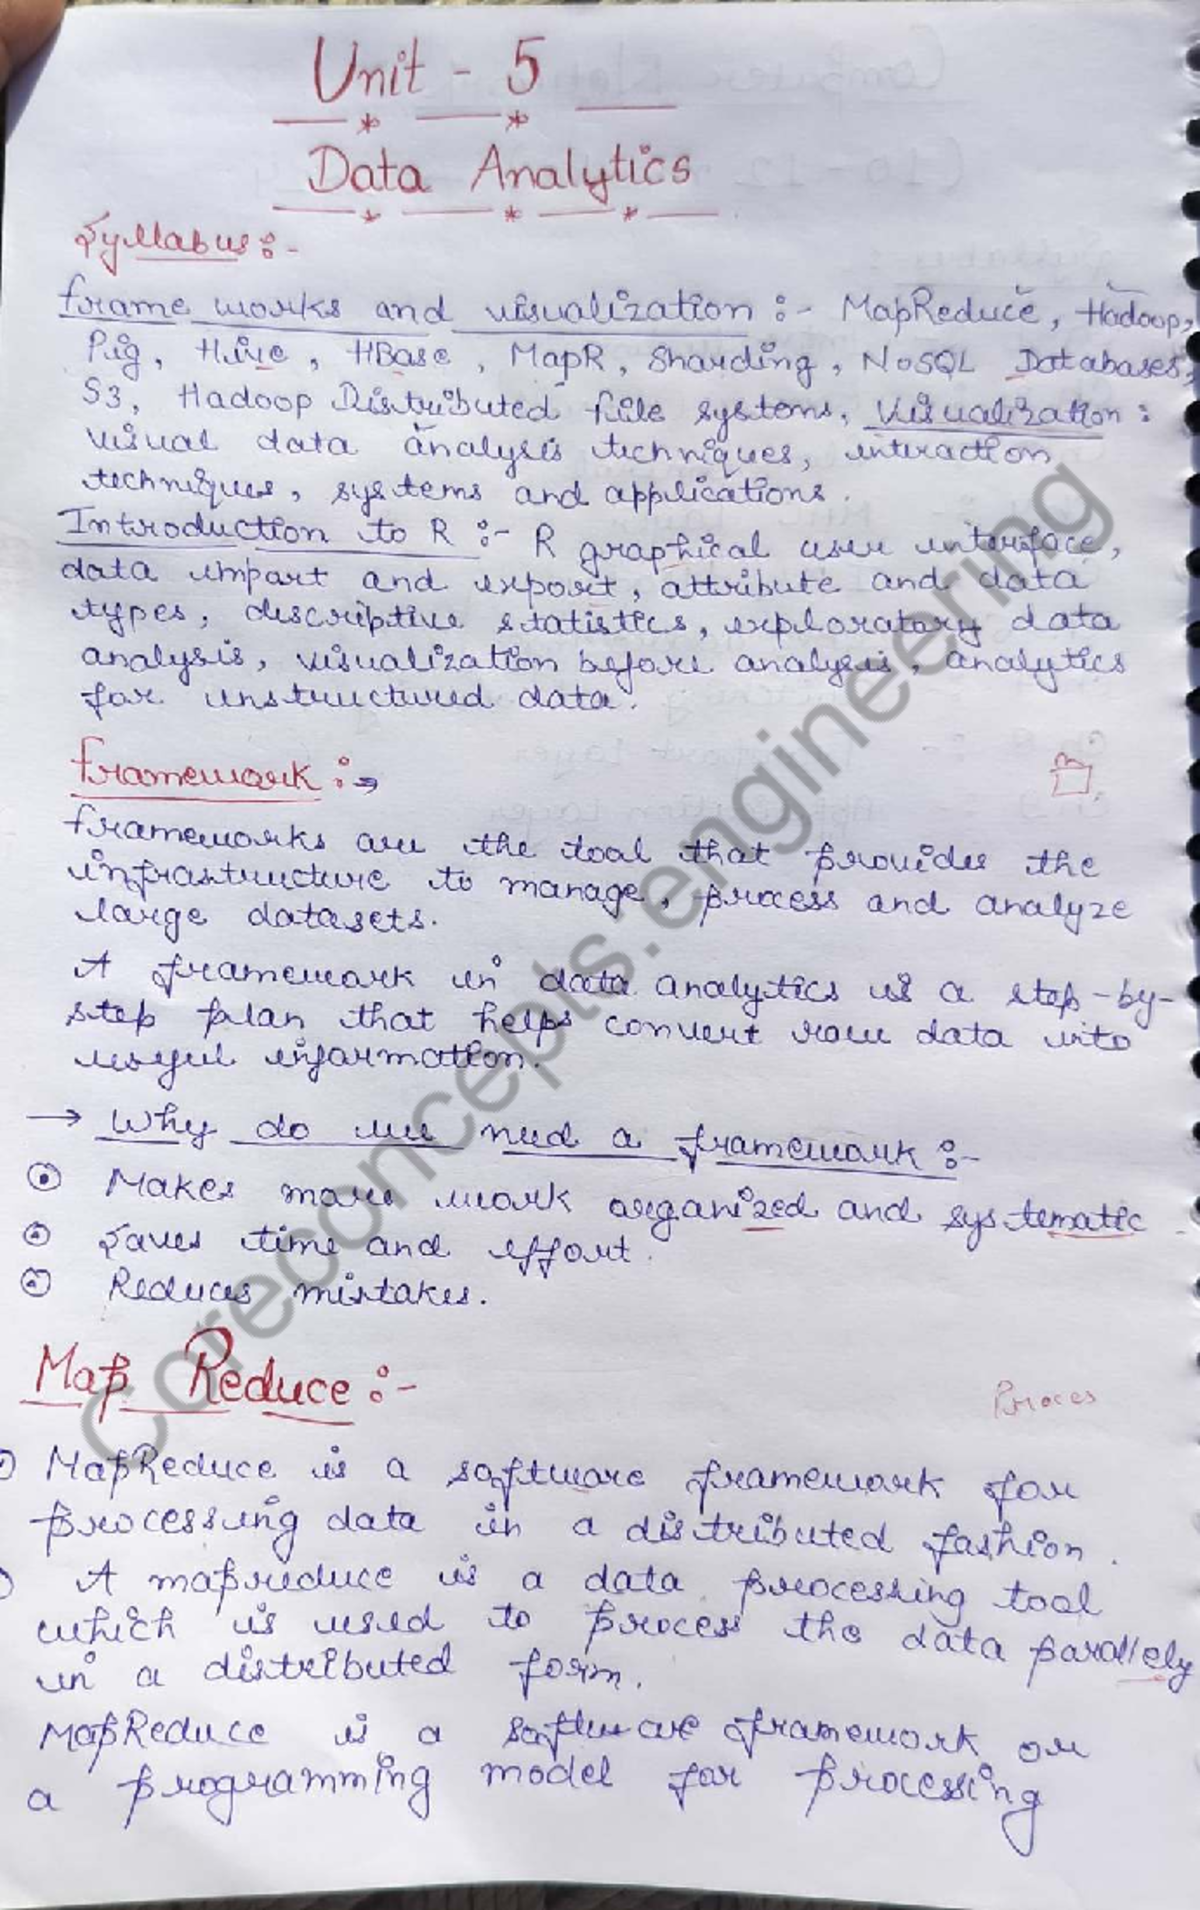 Unit - 5
Data Analytics
Syllabus :-
frame works and visualization :- MapReduce, Hadoop,
Pig, Hive, HBase, MapR, Sharding, NoSQL Databases,
S3, Hadoop Distributed file systems, visualization :
visual data analysis techniques, interaction
techniques, systems and applications.
Introduction to R :- R graphical user interface,
data import and export, attribute and data
types, descriptive statistics, exploratary data
analysis, visualization before analysis, analytics
for unstructured data.
framework :→
frameworks are the tool that provides the
infrastructure to manage, process and analyze
large datasets.
A framework in data analytics is a step-by-
step plan that helps convert raw data into
useful information.
→ Why do we need a framework :-
Makes more work organized and systematic
Saves time and effort.
Reduces mistakes.
Map Reduce :-
Proces
MapReduce is a software framework for
processing data in a distributed fashion.
A mapreduce is a data processing tool
which is used to process the data parallely
in a distributed form.
MapReduce is a software framework or
a programming model for processing
coreconcepts.engineering